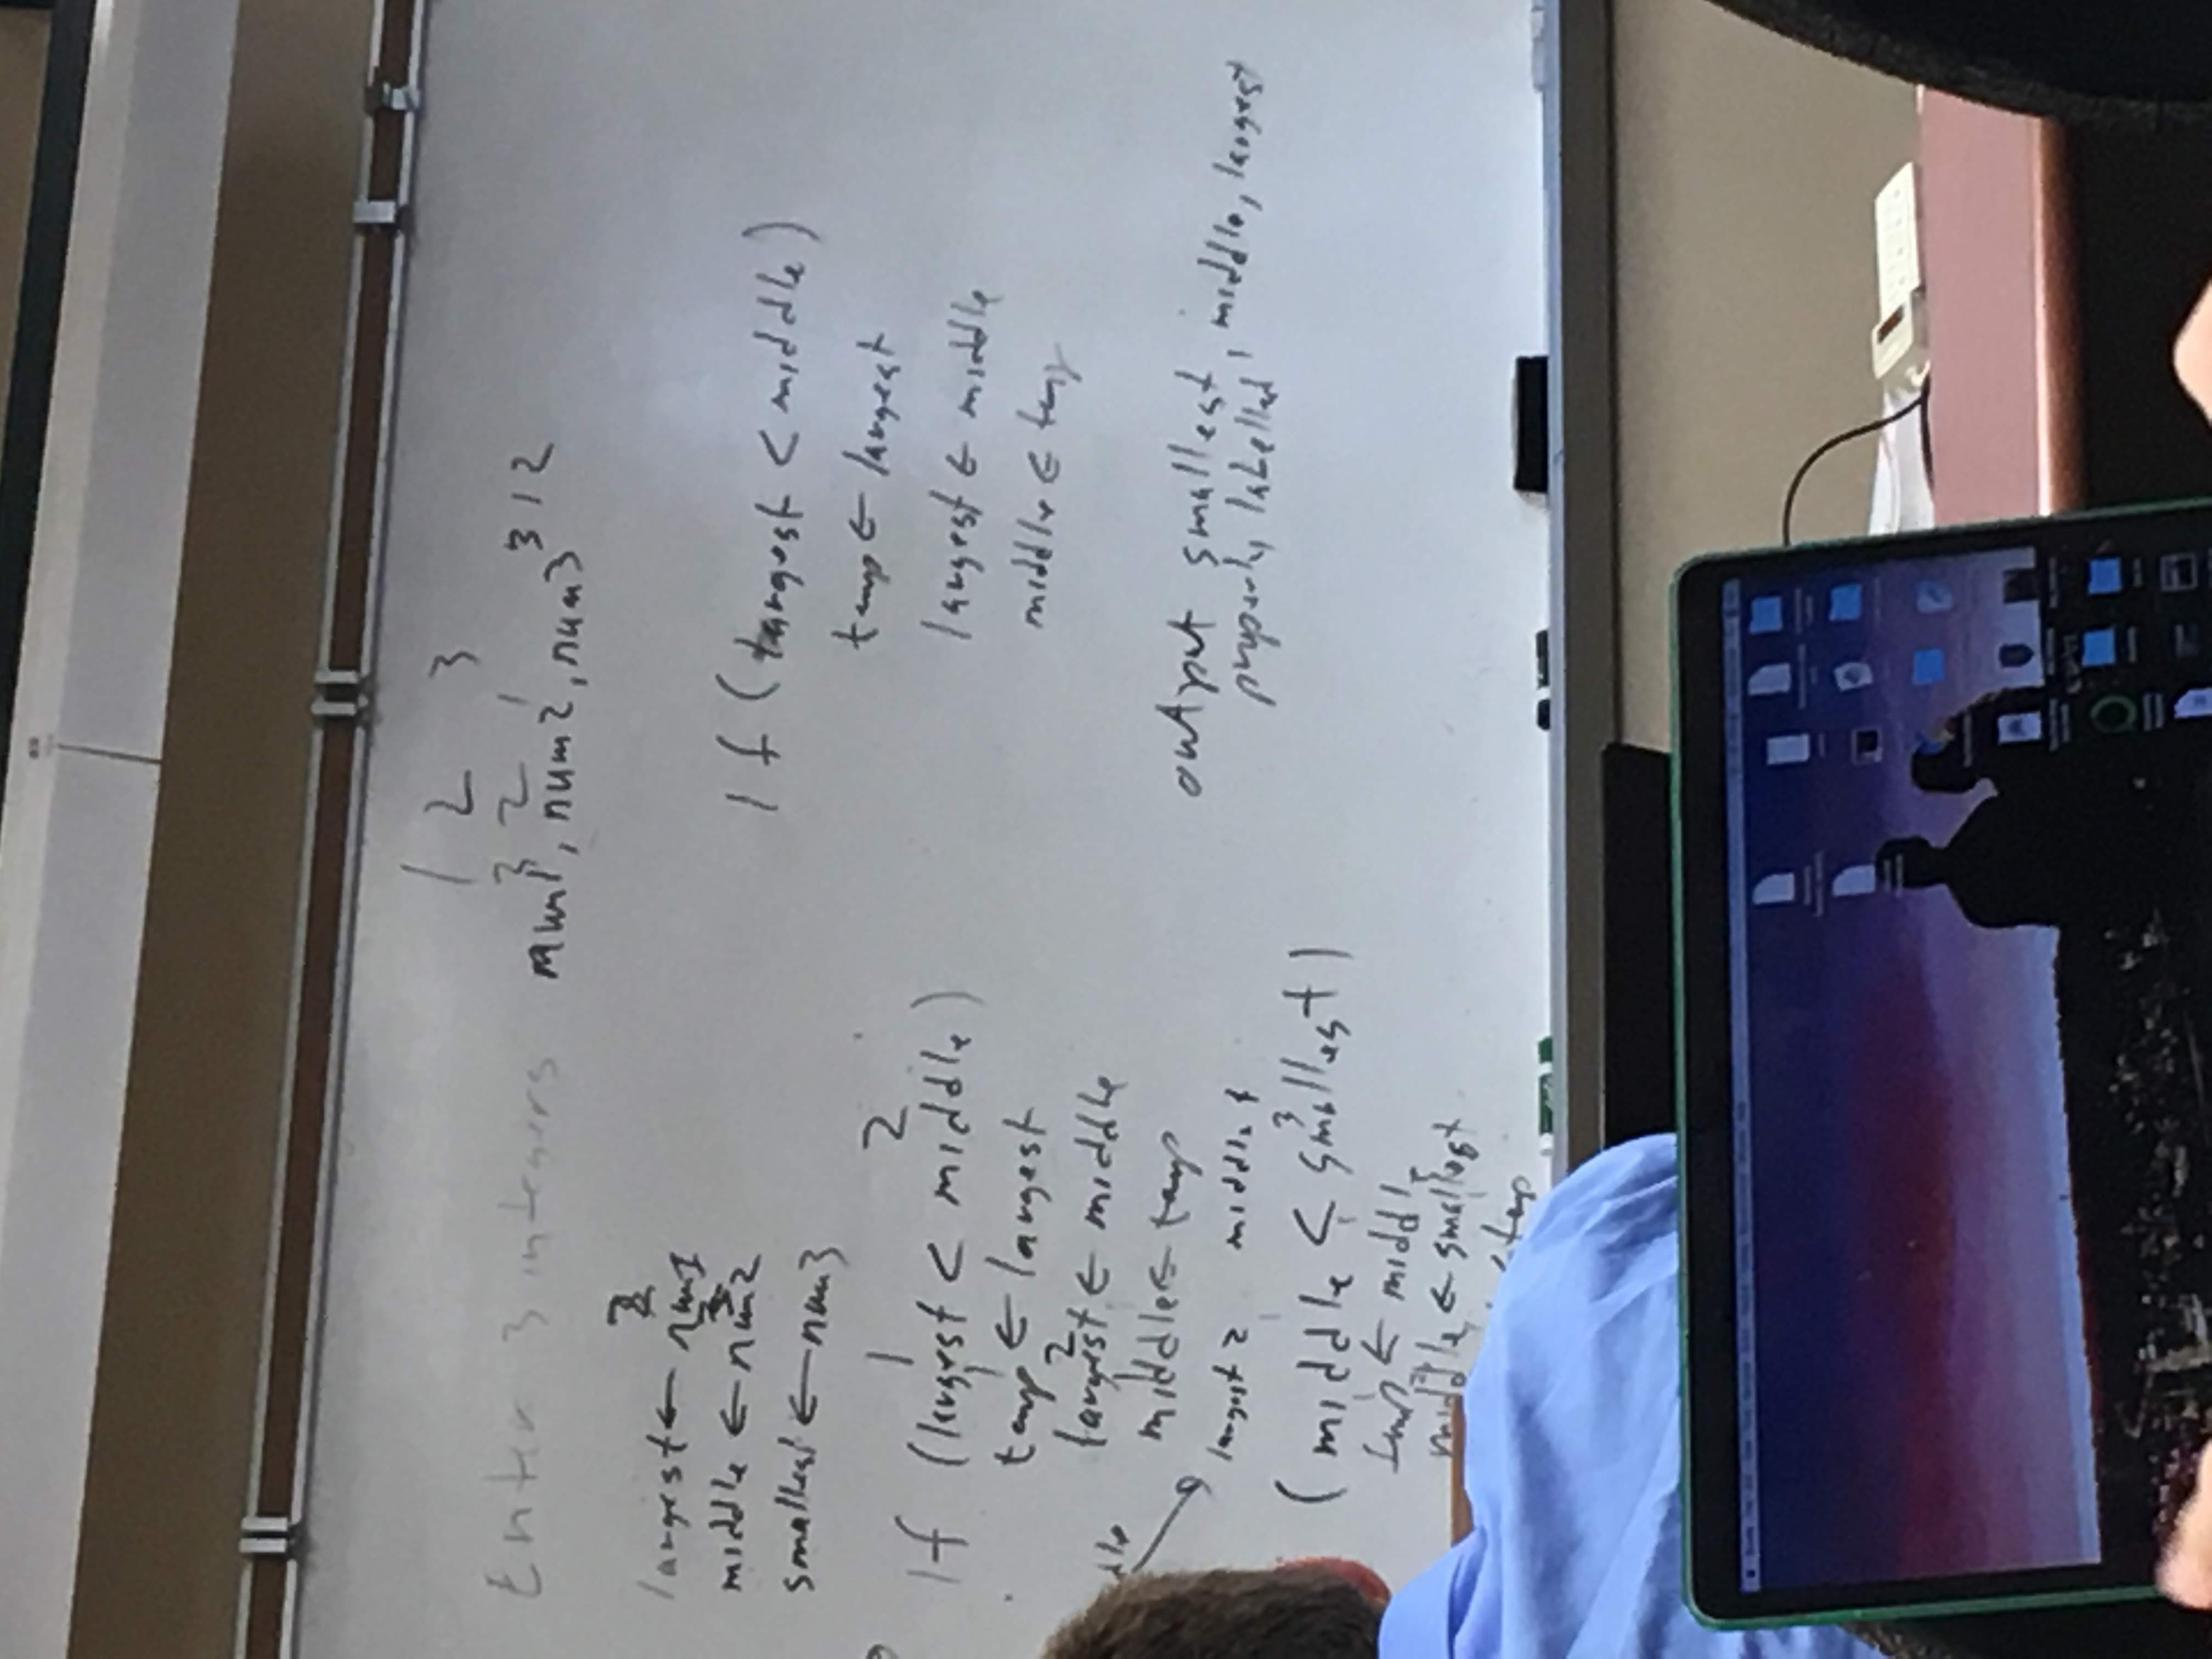 1 2 3
3 2 1
Enter 3 integers num1, num2, num3 3 1 2
largest ← num1
middle ← num2
smallest ← num3
1 2
If (largest < middle)
temp ← largest
2
largest ← middle
middle ← temp
largest 2 middle 1
3
(middle < smallest)
temp ← middl
middle ← smallest
temp
If (largest < middle)
temp ← largest
largest ← middle
middle ← temp
output smallest, middle, largest
properly labelled